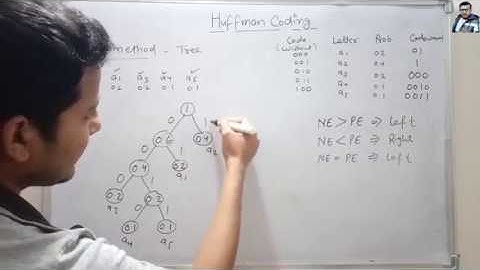 Huffman Coding
method - Tree
a1 a3 a4 a5
0.2 0.2 0.1 0.1
1
0 1
0.6 0.4
0 1 a2
0.4 0.2
0 1 a1
0.2 0.2
a3 0 1
0.1 0.1
a4 a5
Code Letter Prob Codeword
(without)
000 a1 0.2 01
001 a2 0.4 1
010 a3 0.2 000
011 a4 0.1 0010
100 a5 0.1 0011
NE > PE ⇒ Left
NE < PE ⇒ Right
NE = PE ⇒ Left